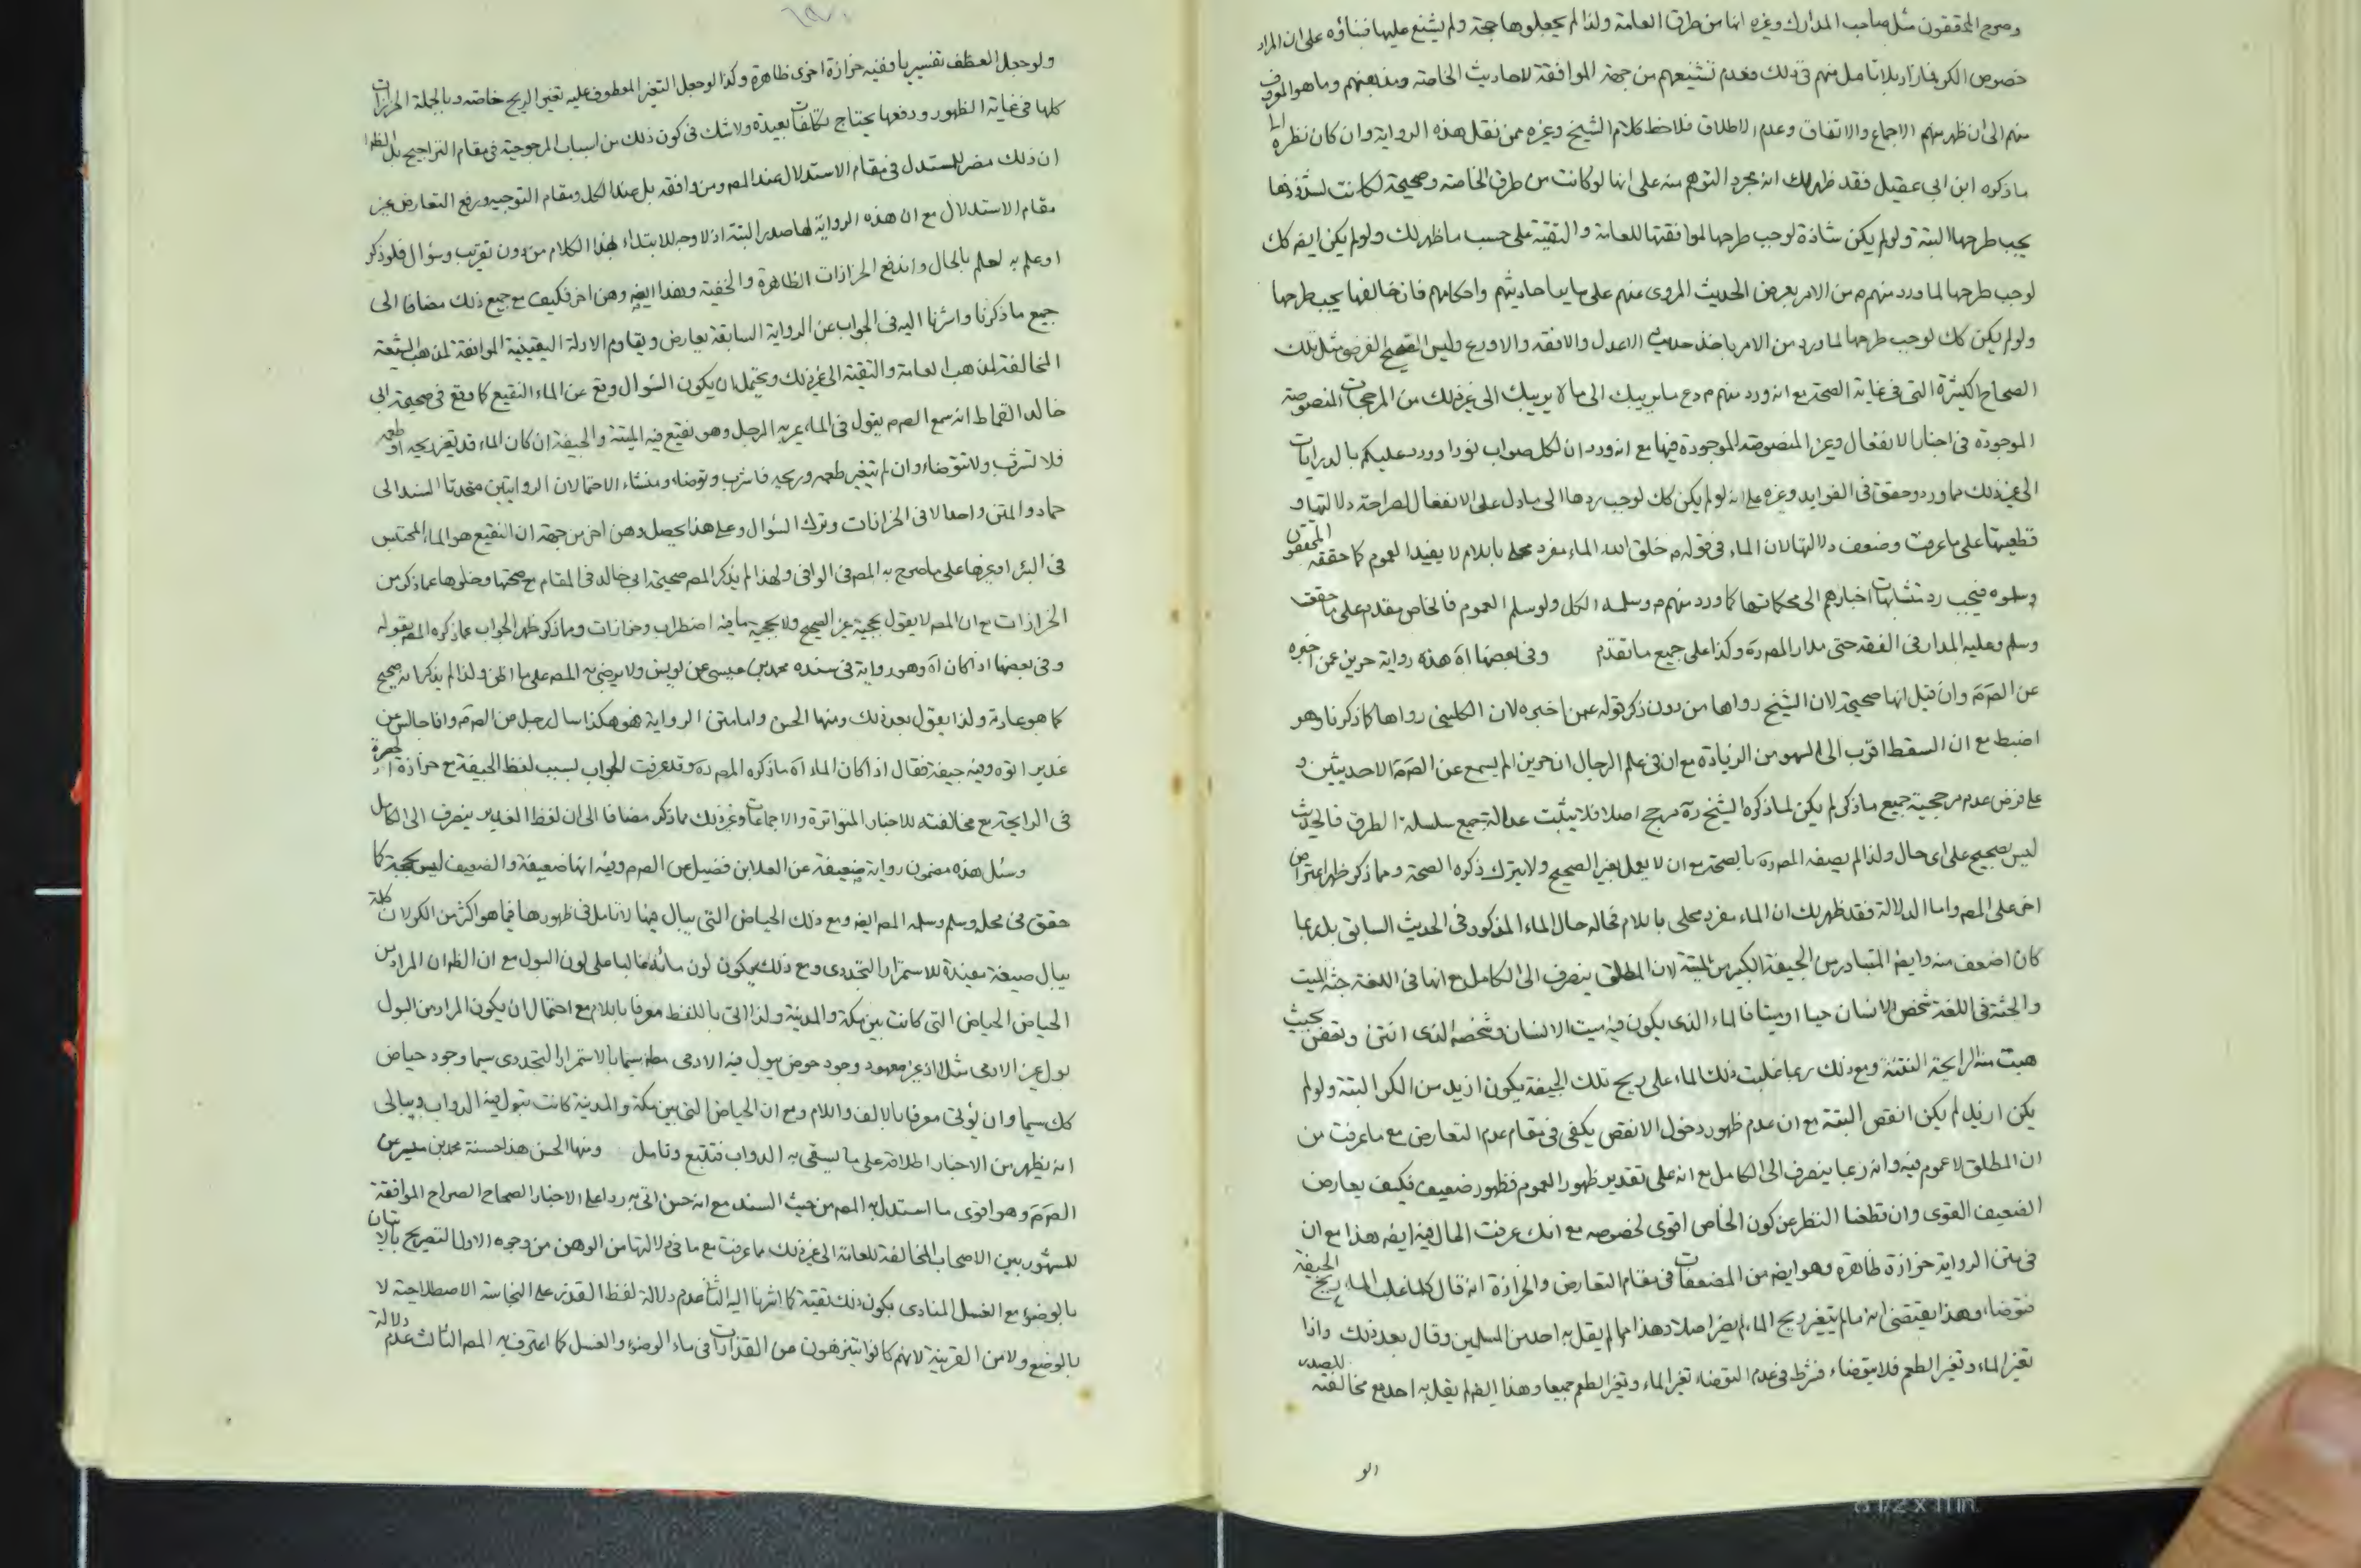 وصرح المحققون مثل صاحب المدارك وغيره انها من طرق العامة ولذا لم يجعلوها حجة ولم يشنع عليها فبناؤه على ان المراد
خصوص الكر فازاد بلا تامل منهم في ذلك فعدم تشنيعهم من جهة الموافقة لاحاديث الخاصة ومذهبهم وما هو المعروف
منهم الى ان ظهر منهم الاجماع والاتفاق وعدم الاطلاق فلاحظ كلام الشيخ وغيره ممن نقل هذه الرواية وان كان نظره الى
ما ذكره ابن ابي عقيل فقد ظهر لك انه مجرد التوهم منه على انها لو كانت من طرق الخاصة وصحيحة لكانت لشذوذها
يجب طرحها البتة ولو لم يكن شاذة لوجب طرحها لموافقتها للعامة والتقية على حسب ما ظهر لك ولو لم يكن ايضا كك
لوجب طرحها لما ورد منهم م من الامر بعرض الحديث المروي عنهم على ساير احاديثهم واحكامهم فان خالفها يجب طرحها
ولو لم يكن كك لوجب طرحها لما ورد من الامر باخذ حديث الاعدل والافقه والاورع وليس الصحيح الفرضي مثل تلك
الصحاح الكثيرة التي في غاية الصحة مع انه ورد منهم م دع ما يريبك الى ما لا يريبك الى غير ذلك من المرجحات المنصوصة
الموجودة في اخبار الانفعال وغير المنصوصة الموجودة فيها مع انه ورد ان لكل صواب نورا وورد عليكم بالدرايات
الى غير ذلك مما ورد وحقق في الفوايد وغيره على انه لو لم يكن كك لوجب ردها الى ما دل على الانفعال لصراحة دلالتها و
قطعيتها على ما عرفت وضعف دلالتها لان الماء في قوله م خلق الله الماء مفرد محلى باللام لا يفيد العموم كما حققه المحققون
وسلموه فيجب رد متشابهات اخبارهم الى محكماتها كما ورد منهم م وسلمه الكل ولو سلم العموم فالخاص مقدم على ما حقق
وسلم وعليه المدار في الفقه حتى مدار المص ره وكذا على جميع ما تقدم وفي بعضها اه هذه رواية حريز عمن اخبره
عن الص م وان قيل انها صحيحة لان الشيخ رواها من دون ذكر قوله عمن اخبره لان الكليني رواها كما ذكرنا وهو
اضبط مع ان السقط اقرب الى السهو من الزيادة مع ان في علم الرجال ان حريز لم يسمع عن الص م الا حديثين و
على فرض عدم مرجحية جميع ما ذكر لم يكن لما ذكره الشيخ ره مرجح اصلا فلا يثبت عدالة جميع سلسلة الطرق فالحديث
ليس بصحيح على اي حال ولذا لم يصفه المص ره بالصحة مع ان لا يعمل بغير الصحيح ولا يترك ذكره الصحة ومما ذكر ظهر اعتراض
اخر على المص واما الدلالة فقد ظهر لك ان الماء مفرد محلى باللام فحاله حال الماء المذكور في الحديث السابق بل ربما
كان اضعف منه وايضا المتبادر من الجيفة الكبير من الميتة لان المطلق ينصرف الى الكامل مع انها في اللغة جثة الميت
والجثة في اللغة شخص الانسان حيا او ميتا فالماء الذي يكون فيه ميت الانسان وشخصه الذي انتن وتعفن بحيث
هبت منه الرايحة النتنة ومع ذلك ربما غلبت ذلك الماء على ريح تلك الجيفة يكون ازيد من الكر البتة ولو لم
يكن ازيد لم يكن انقص البتة مع ان عدم ظهور دخول الانقص يكفي في مقام عدم التعارض مع ما عرفت من
ان المطلق لا عموم فيه وانه ربما ينصرف الى الكامل مع انه على تقدير ظهور العموم فظهور ضعيف فكيف يعارض
الضعيف القوي وان قطعنا النظر عن كون الخاص اقوى لخصوصه مع انك عرفت الحال فيه ايضا هذا مع ان
في متن الرواية حزازة ظاهرة وهو ايضا من المضعفات في مقام التعارض والحزازة انه قال كلما غلب الماء ريح الجيفة
فتوضا وهذا يقتضي انه ما لم يتغير ريح الماء لم يضر اصلا وهذا مما لم يقل به احد من المسلمين وقال بعد ذلك واذا
تغير الماء وتغير الطعم فلا يتوضاء فشرط في عدم التوضاء تغير الماء وتغير الطعم جميعا وهذا ايضا لم يقل به احد مع مخالفته للصدر
الو
ولو جعل العطف تفسيريا ففيه حزازة اخرى ظاهرة وكذا لو جعل التغير المعطوف عليه تغير الريح خاصة وبالجملة الحزازات
كلها في غاية الظهور ودفعها يحتاج تكلفات بعيدة ولا شك في كون ذلك من اسباب المرجوحية في مقام التراجيح بل الظاهر
ان ذلك مضر للمستدل في مقام الاستدلال عند المص ومن وافقه بل عند الكل ومقام التوجيه ورفع التعارض غير
مقام الاستدلال مع ان هذه الرواية لها صدر البتة اذ لا وجه للابتداء بهذا الكلام من دون تقريب وسؤال فلو ذكر
او علم به لعلم بالحال واندفع الحزازات الظاهرة والخفية وهذا ايضا وهن اخر فكيف مع جميع ذلك مضافا الى
جميع ما ذكرنا واشرنا اليه في الجواب عن الرواية السابقة يعارض ويقاوم الادلة اليقينية الموافقة لمذهب الشيعة
المخالفة لمذهب العامة والتقية الى غير ذلك ويحتمل ان يكون السؤال وقع عن الماء النقيع كما وقع في صحيحة ابي
خالد القماط انه سمع الص م يقول في الماء يمر به الرجل وهو نقيع فيه الميتة والجيفة ان كان الماء قد تغير ريحه او طعمه
فلا تشرب ولا تتوضاء وان لم يتغير طعمه وريحه فاشرب وتوضاء ومنشاء الاحتمال ان الروايتين متحدتا السند الى
حماد والمتن واحد الا في الحزازات وترك السؤال وعلى هذا يحصل وهن اخر من جهة ان النقيع هو الماء المحتبس
في البئر او غيرها على ما صرح به المص في الوافي ولهذا لم يذكر المص صحيحة ابي خالد في المقام مع صحتها وخلوها عما ذكر من
الحزازات مع ان المص لا يقول بحجية غير الصحيح ولا بحجية ما فيه اضطراب وحزازات ومما ذكر ظهر الجواب عما ذكره المص بقوله
وفي بعضها اذا كان اه وهو رواية في سنده محمد بن عيسى عن يونس ولا يرضى به المص على ما اظن ولذا لم يذكر انه صحيح
كما هو عادته ولذا يقول بعد ذلك ومنها الحسن واما متن الرواية فهو هكذا سال رجل من الص م وانا جالس عن
غدير اتوه وفيه جيفة فقال اذا كان الماء اه ما ذكره المص ره وقد عرفت الجواب بسبب لفظ الجيفة مع حزازة
في الرايحة مع مخالفته للاخبار المتواترة والاجماعات وغير ذلك مما ذكر مضافا الى ان لفظ الغدير ينصرف الى الكامل
وسئل هذه مضمون رواية ضعيفة عن العلا بن فضيل عن الص م وفيه انها ضعيفة والضعيف ليس بحجة كما
حقق في محله وسلم وسلمه المص ايضا ومع ذلك الحياض التي يبال فيها لا تامل في ظهورها فيما هو اكثر من الكر لان كلمة
يبال صيغة مفيدة للاستمرار التجددي ومع ذلك يكون لون مائه غالبا على لون البول مع ان الظ ان المراد من
الحياض الحياض التي كانت بين مكة والمدينة ولذا اتى باللفظ معرفا باللام مع احتمال ان يكون المراد من البول
بول غير الادمي مثلا اذ غير معهود وجود حوض يبول فيه الادمي سيما بالاستمرار التجددي سيما وجود حياض
كك سيما وان يؤتى معرفا بالالف واللام ومع ان الحياض التي بين مكة والمدينة كانت تبول فيها الدواب ويبالي
انه يظهر من الاخبار اطلاقه على ما يسقى به الدواب فتتبع وتامل ومنها الحسن هذا حسنة محمد بن ميسر عن
الص م وهو اقوى ما استدل به المص من حيث السند مع انه حسن اتى به ردا على الاخبار الصحاح الصراح الموافقة
للمشهور بين الاصحاب المخالفة للعامة الى غير ذلك مما عرفت مع ما في دلالتها من الوهن من وجوه الاول التصريح بالاتيان
بالوضوء مع الغسل المنادي بكون ذلك تقية كما اشرنا اليه الثاني عدم دلالة لفظ القذر على النجاسة الاصطلاحية لا
بالوضع ولا من القرينة لانهم كانوا يتنزهون من القذارات في ماء الوضوء والغسل كما اعترف به المص الثالث عدم دلالة